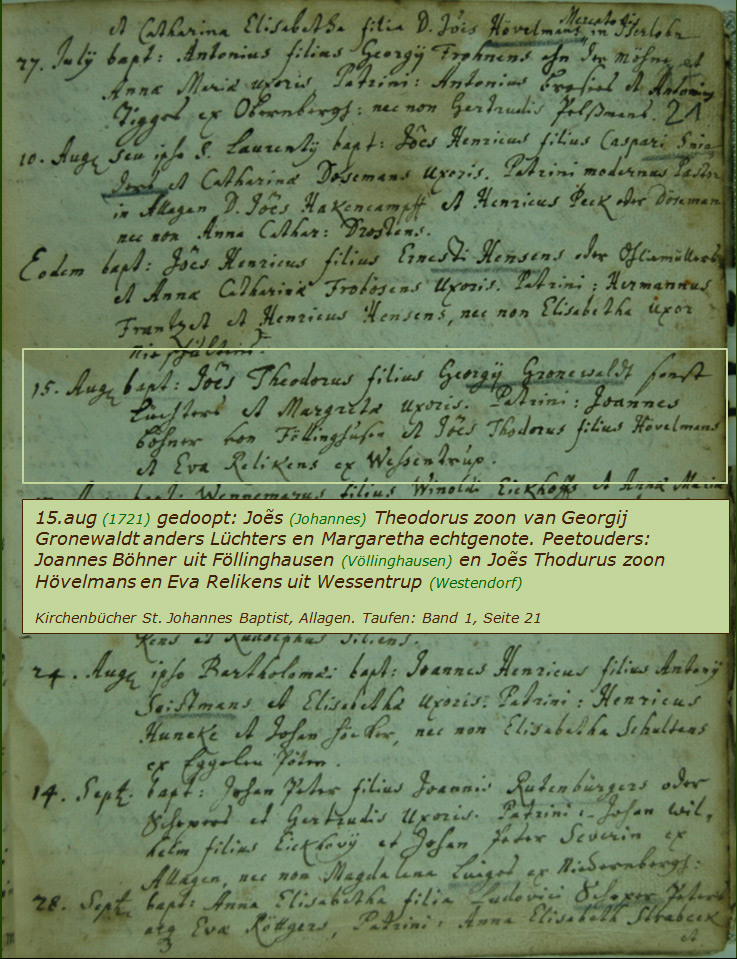 et Catharina Elisabetha filia D. Joẽs Hövelmans Mercatoris in Iserlohn
27. July bapt: Antonius filius Georgÿ Frohnens ahn der möhne et
Annæ Mariæ uxoris. Patrini: Antonius et Antonius
Tigges ex Obernbergh: nec non Gertrudis
21
10. Aug seu ipso S. Laurentÿ bapt: Joẽs Henricus filius Caspari
et Catharinæ Dösemans uxoris. Patrini modernus Pastor
in Allagen D. Joẽs Hakencampff et Henricus Peck oder Döseman
nec non Anna Cathar: Drostens.
Eodem bapt: Joẽs Henricus filius Ernesti Hensens oder
et Annæ Catharinæ Frobösens uxoris. Patrini: Hermannus
Frantz et Henricus Hensens, nec non Elisabetha uxor
15. Aug bapt: Joẽs Theodorus filius Georgÿ Gronewaldt sonst
Lüchters et Margretæ uxoris. Patrini: Joannes
Böhner von Föllinghusen et Joẽs Thodorus filius Hövelmans
et Eva Relikens ex Wessentrup.
bapt: Wennemarus filius Winoldi Eickhoffs et Anna Maria
15.aug (1721) gedoopt: Joẽs (Johannes) Theodorus zoon van Georgij
Gronewaldt anders Lüchters en Margaretha echtgenote. Peetouders:
Joannes Böhner uit Föllinghausen (Völlinghausen) en Joẽs Thodurus zoon
Hövelmans en Eva Relikens uit Wessentrup (Westendorf)
Kirchenbücher St. Johannes Baptist, Allagen. Taufen: Band 1, Seite 21
kens et Rudolphus
24. Aug ipso Bartholomæi bapt: Joannes Henricus filius Antonÿ
et Elisabethæ uxoris. Patrini: Henricus
Huneke et Johan, nec non Elisabetha Schultens
ex
14. Sept. bapt: Johan Peter filius Joannis Rutenbürgers oder
Schapers et Gertrudis uxoris. Patrini: Johan wil,
helm filius et Johan Peter Severin ex
Allagen, nec non Magdalena ex Niedernbergh:
28. Sept. bapt: Anna Elisabetha filia Ludovici Schaper Peters
Evæ Röttgers, Patrini: Anna Elisabeth
et